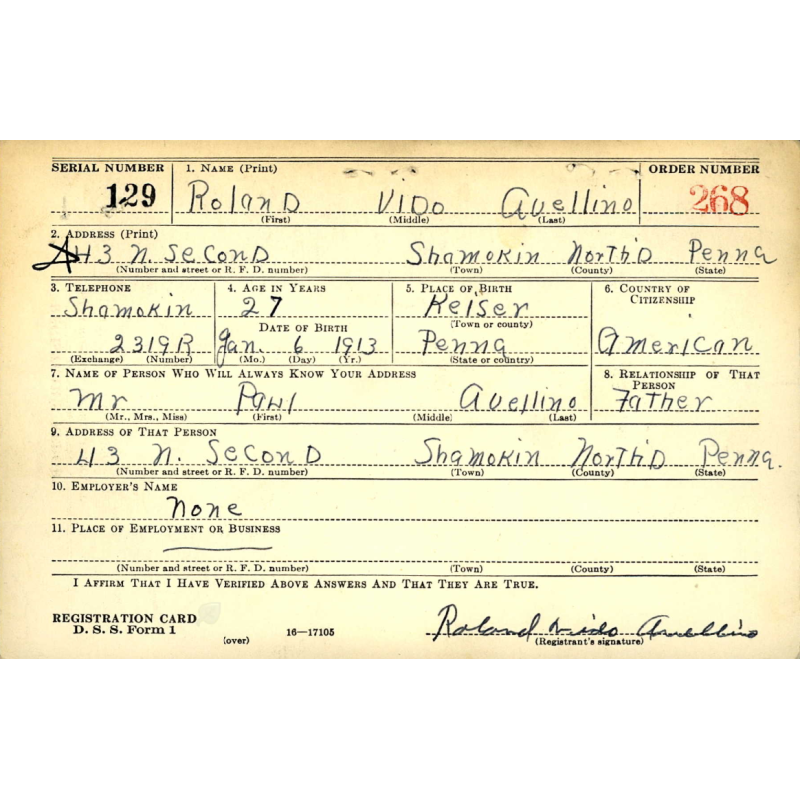 SERIAL NUMBER 1. NAME (Print) ORDER NUMBER
129 Roland Vido Avellino 268
(First) (Middle) (Last)
2. ADDRESS (Print)
43 N. Second Shamokin North'd Penna
(Number and street or R. F. D. number) (Town) (County) (State)
3. TELEPHONE 4. AGE IN YEARS 5. PLACE OF BIRTH 6. COUNTRY OF CITIZENSHIP
Shamokin 27 Keiser
DATE OF BIRTH (Town or county)
2319R Jan. 6 1913 Penna American
(Exchange) (Number) (Mo.) (Day) (Yr.) (State or country)
7. NAME OF PERSON WHO WILL ALWAYS KNOW YOUR ADDRESS 8. RELATIONSHIP OF THAT PERSON
Mr Paul Avellino Father
(Mr., Mrs., Miss) (First) (Middle) (Last)
9. ADDRESS OF THAT PERSON
43 N. Second Shamokin North'd Penna.
(Number and street or R. F. D. number) (Town) (County) (State)
10. EMPLOYER'S NAME
None
11. PLACE OF EMPLOYMENT OR BUSINESS
(Number and street or R. F. D. number) (Town) (County) (State)
I AFFIRM THAT I HAVE VERIFIED ABOVE ANSWERS AND THAT THEY ARE TRUE.
REGISTRATION CARD
D. S. S. Form 1 (over) 16—17105 Roland Vido Avellino
(Registrant's signature)